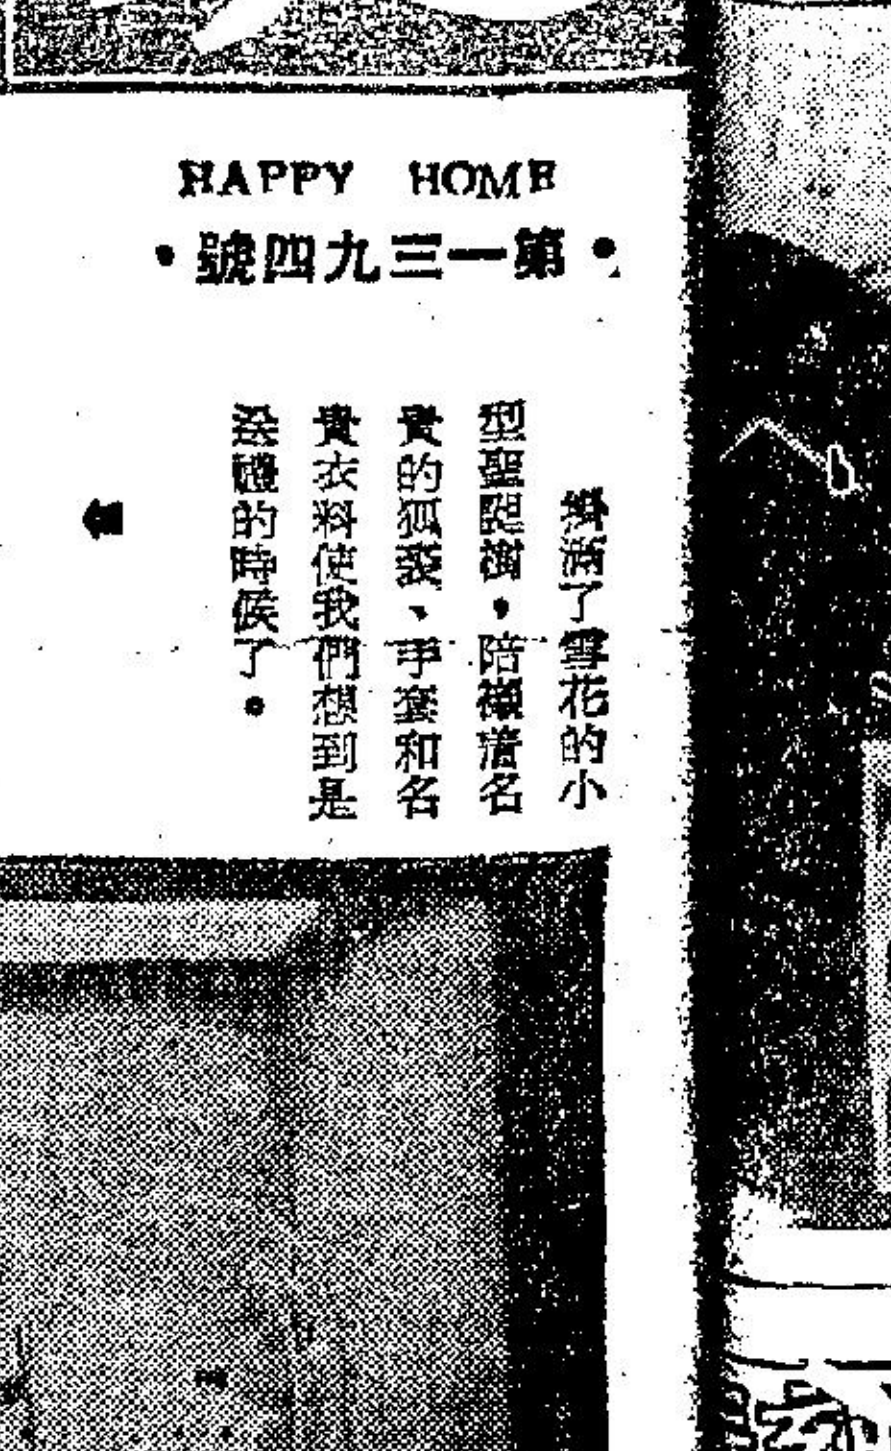 HAPPY HOME
•第一三九四號•
掛滿了雪花的小
型聖誕樹，陪襯着名
貴的狐裘、手套和名
貴衣料使我們想到是
送禮的時候了。